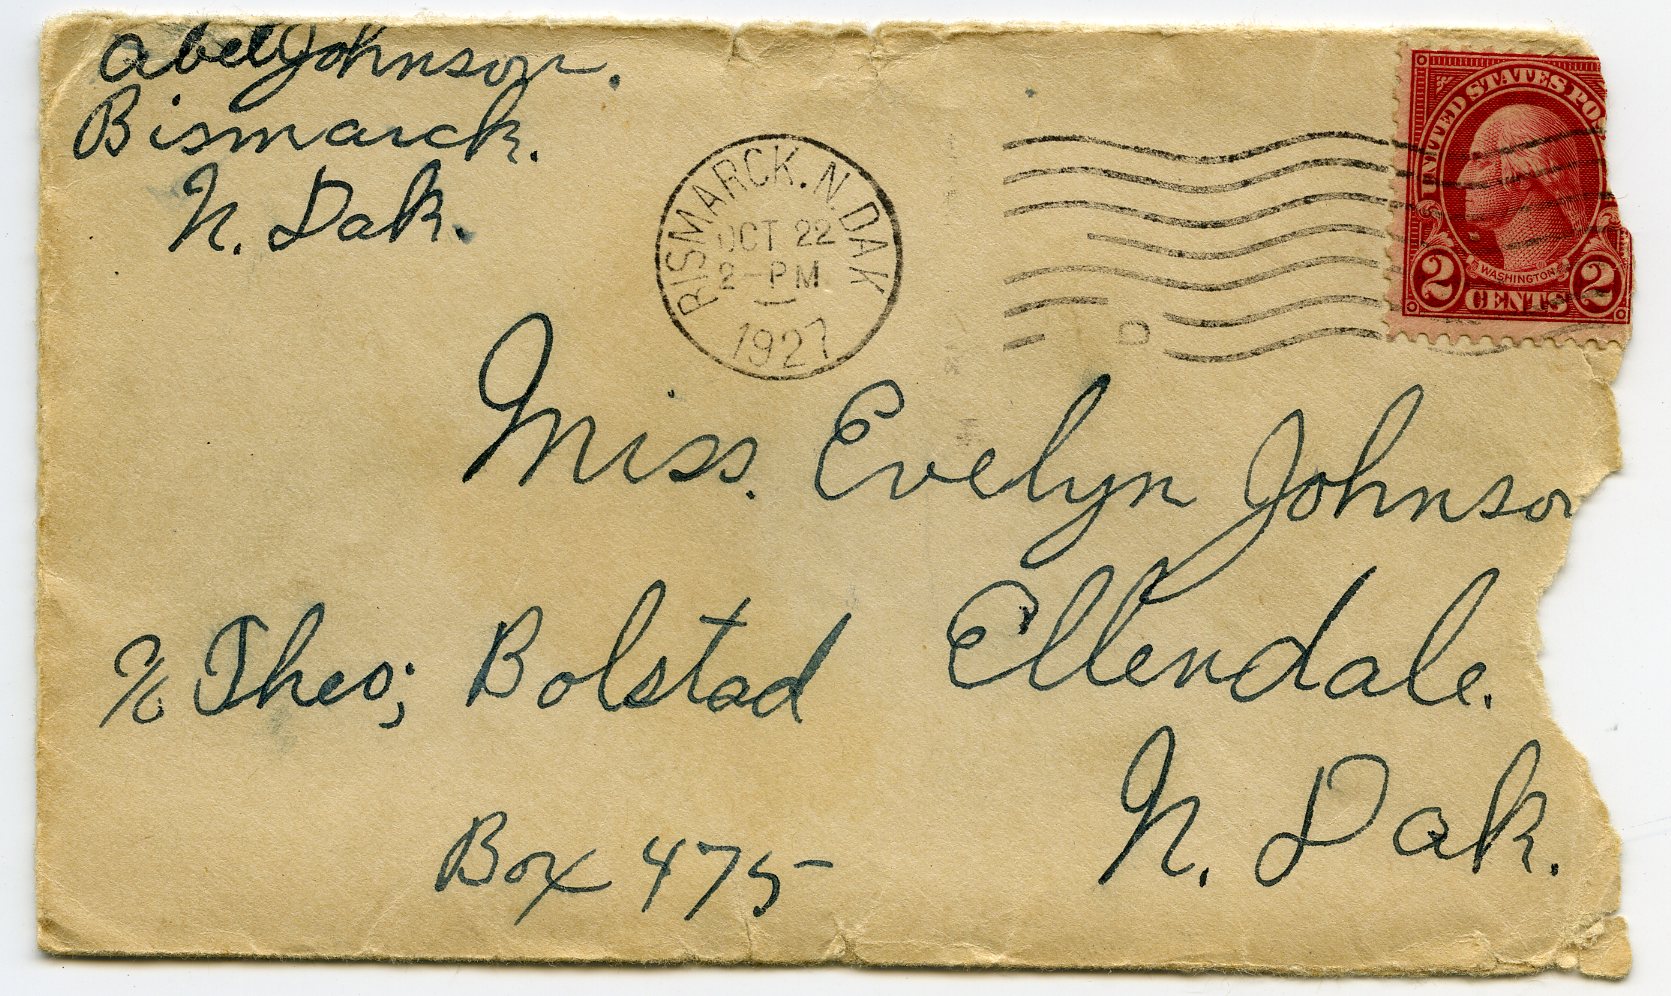 Abel Johnson.
Bismarck.
N. Dak.
BISMARCK, N. DAK
OCT 22
2-PM
1927
D
UNITED STATES PO
WASHINGTON
2 CENTS 2
Miss. Evelyn Johnso
Ellendale.
N. Dak.
℅ Theo; Bolstad
Box 475